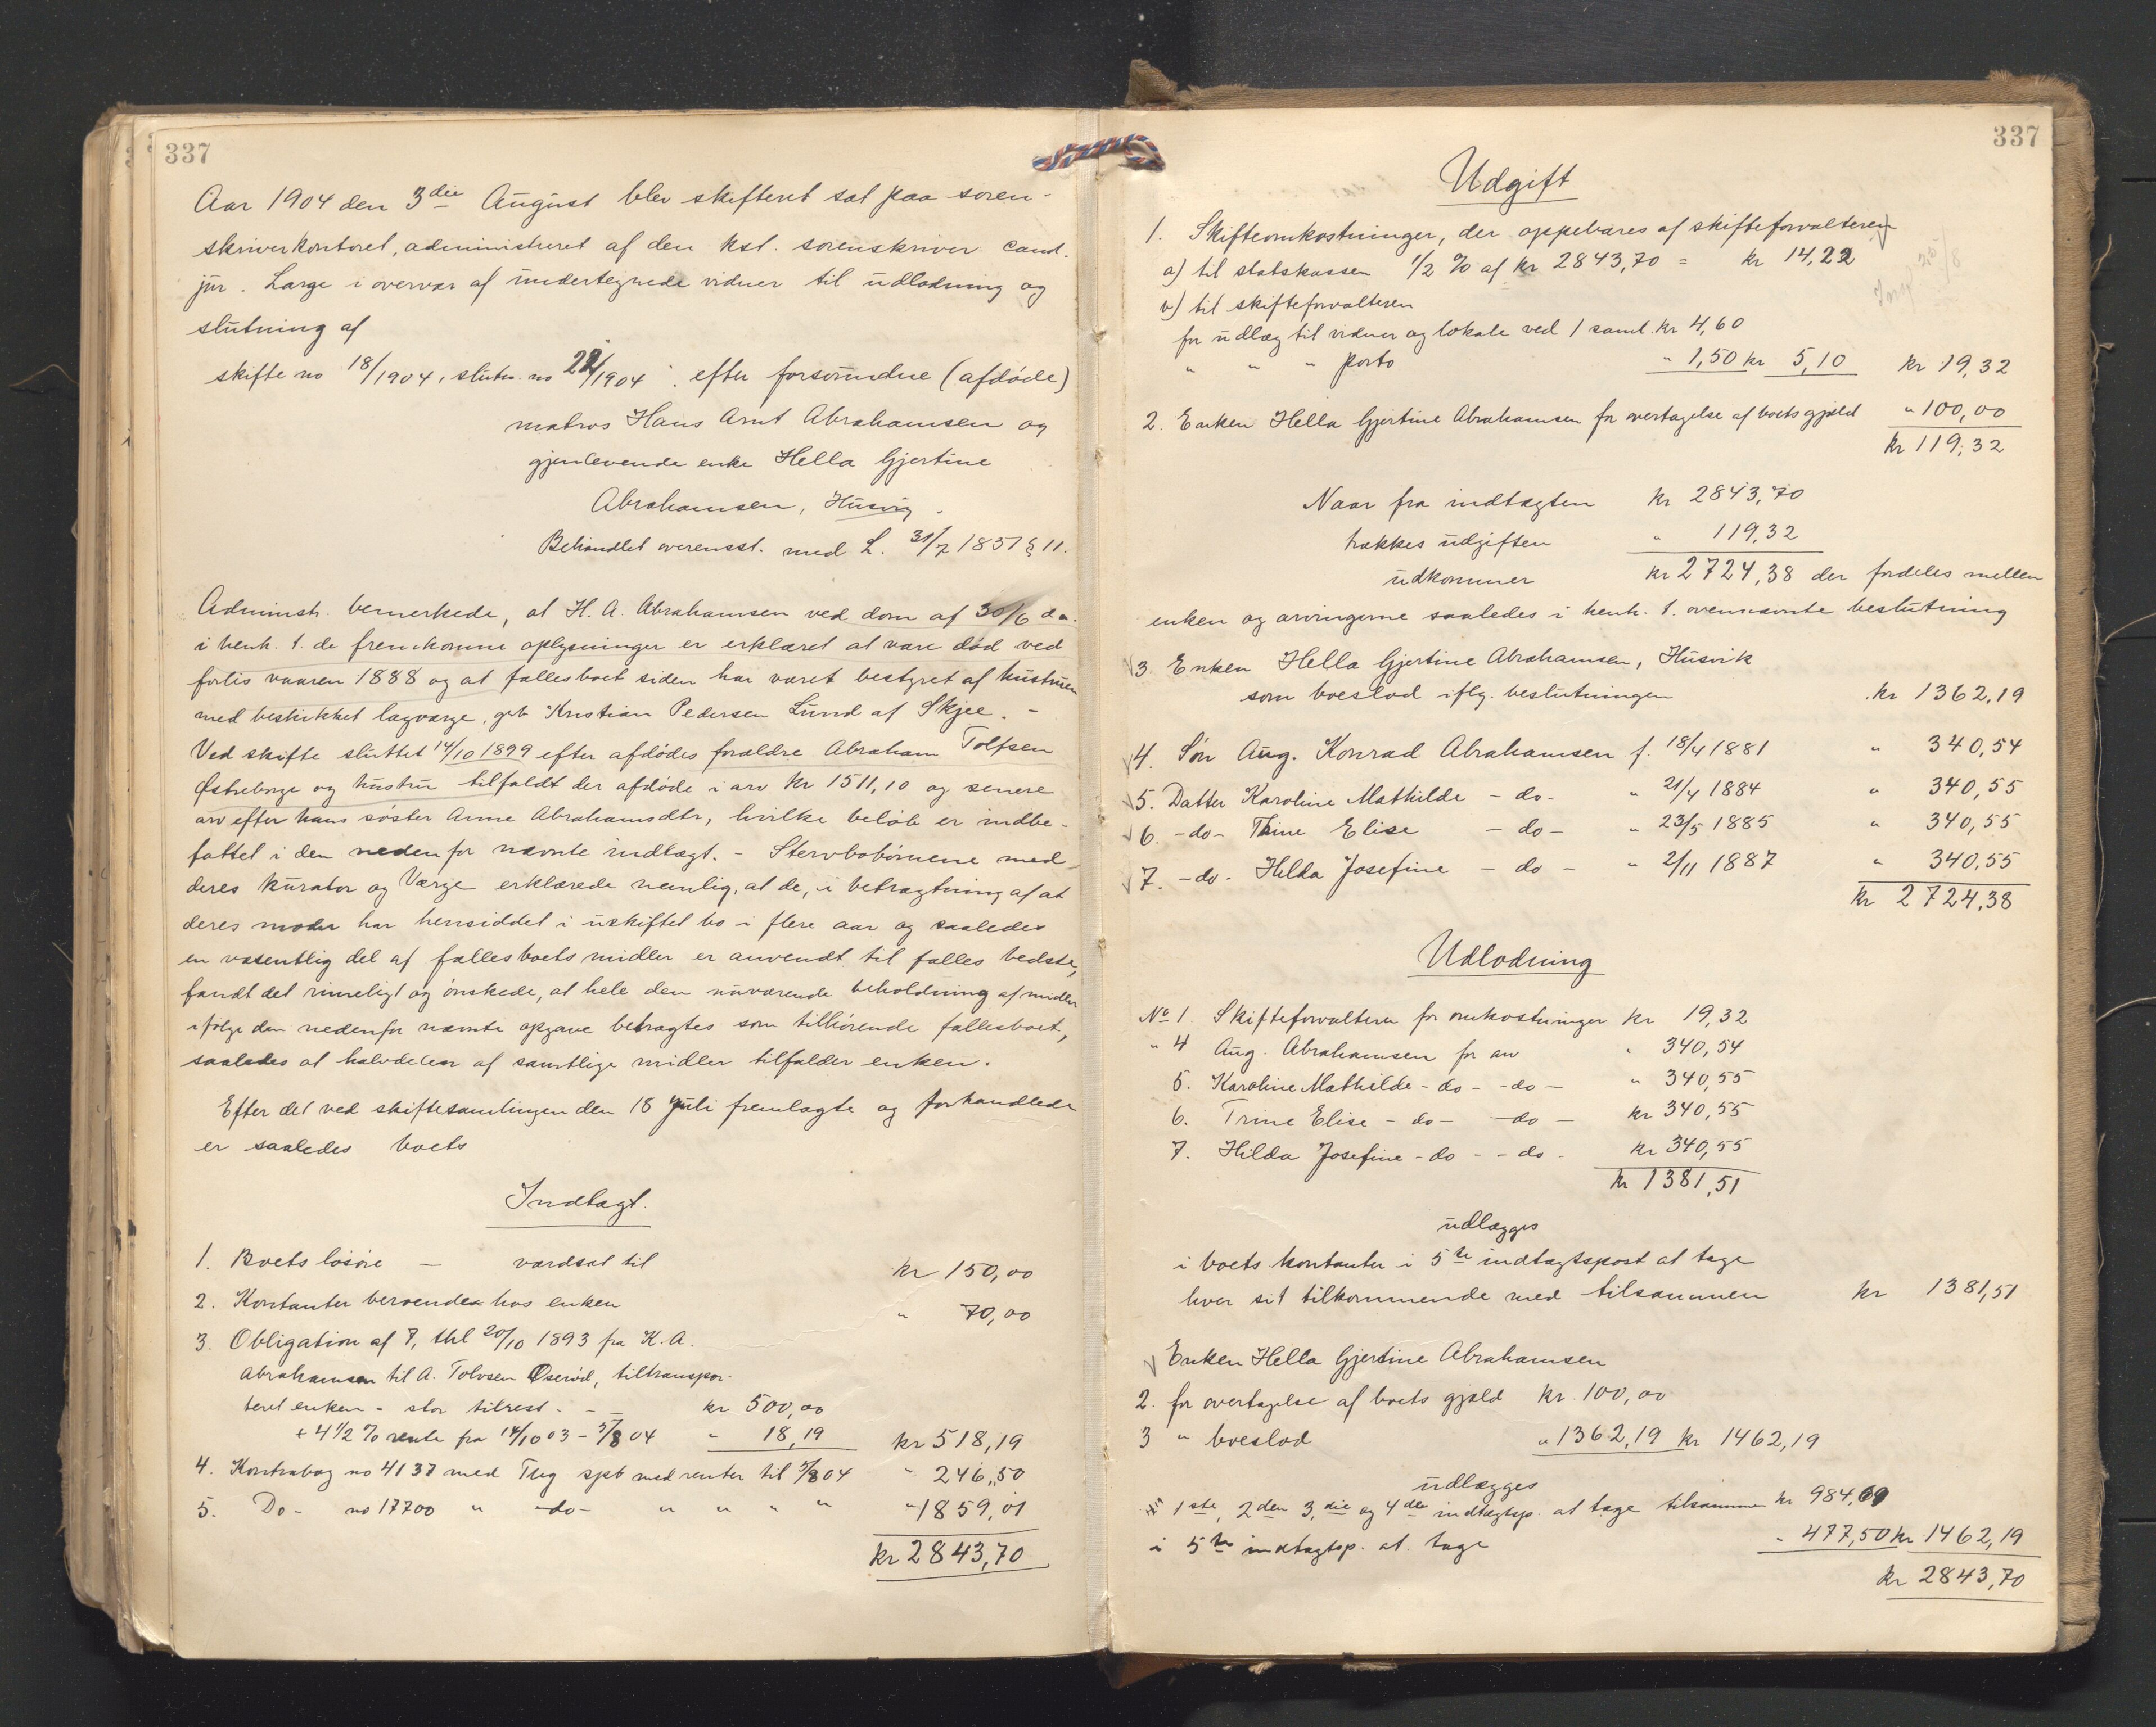 337
Aar 1904 den 3die August blev skifteret sat paa soren-
skriverkontoret, administreret af den kst. sorenskriver cand.
jur. Large i overvær af undertegnede vidner til udlodning og
slutning af
skifte no 18/1904, slutn. no 22/1904 efter forsvundne (afdöde)
matros Hans Arnt Abrahamsen og
gjenlevende enke Hella Gjertine
Abrahamsen, Husvig.
Behandlet overensst. med L. 31/7 1851 § 11.
Administr. bemerkede, at H. A. Abrahamsen ved dom af 30/6 d.a.
i henh. t. de fremkomne oplysninger er erklæret at være död ved
forlis vaaren 1888 og at fællesboet siden har været bestyret af hustruen
med beskikket lagværge, gb. Kristian Pedersen Lund af Skjee. -
Ved skifte sluttet 14/10 1899 efter afdödes forældre Abraham Tolfsen
Østreborge og hustru tilfaldt der afdöde i arv kr 1511,10 og senere
arv efter hans söster Anne Abrahamsdtr, hvilke belöb er indbe-
fattet i den nedenfor nævnte indtægt. - Stervbobörnene med
deres kurator og Værge erklærede nemlig, at de, i betragtning af at
deres moder har hensiddet i uskiftet bo i flere aar og saaledes
en væsentlig del af fællesboets midler er anvendt til fælles bedste,
fandt det rimeligt og önskede, at hele den nuværende beholdning af midler
ifölge den nedenfor nævnte opgave betragtes som tilhörende fællesboet,
saaledes at halvdelen af samtlige midler tilfalder enken.
Efter det ved skiftesamlingen den 18 juli fremlagte og forhandlede
er saaledes boets
Indtægt.
1. Boets lösöre — værdsat til kr 150,00
2. Kontanter beroende hos enken " 70,00
3. Obligation af 7, thl 20/10 1893 fra K. A.
Abrahamsen til A. Tolvsen Oseröd, tiltranspor-
teret enken - stor tilrest - - kr 500,00
+ 4 1/2 % rente fra 14/10 03 - 3/8 04 " 18,19 kr 518,19
4. Kontrabog no 4137 med Tbg spb med renter til 3/8 04 " 246,50
5. Do- no 17700 " -do- " " " " " 1859,01
kr 2843,70
337
Udgift
1. Skifteomkostninger, der oppebæres af skifteforvalteren
a) til statskassen 1/2 % af kr 2843,70 = kr 14,22
b) til skifteforvalteren
for udlæg til vidner og lokale ved 1 saml. kr 4,60
" " " porto " 1,50 kr 5,10 kr 19,32
2. Enken Hella Gjertine Abrahamsen for overtagelse af boets gjæld " 100,00
kr 119,32
Naar fra indtægten kr 2843,70
trækkes udgiften " 119,32
udkommer kr 2724,38 der fordeles mellem
enken og arvingerne saaledes i henh. t. ovennævnte beslutning
3. Enken Hella Gjertine Abrahamsen, Husvik
som boeslod iflg. beslutningen kr 1362,19
4. Sön Aug. Konrad Abrahamsen f. 18/4 1881 " 340,54
5. Datter Karoline Mathilde - do- " 21/4 1884 " 340,55
6. -do- Thine Elise - do - " 23/5 1885 " 340,55
7. -do- Hilda Josefine - do - " 2/11 1887 " 340,55
kr 2724,38
Udlodning
No 1. Skifteforvalteren for omkostninger kr 19,32
" 4 Aug. Abrahamsen for arv " 340,54
5. Karoline Mathilde - do - - do - " 340,55
6. Trine Elise - do - - do - kr 340,55
7. Hilda Josefine - do - - do - kr 340,55
kr 1381,51
udlægges
i boets kontanter i 5te indtægtspost at tage
hver sit tilkommende med tilsammen kr 1381,51
Enken Hella Gjertine Abrahamsen
2. for overtagelse af boets gjæld kr. 100,00
3 " boeslod " 1362,19 kr 1462,19
udlægges
i 1ste, 2den 3.die og 4de indtægtsp. at tage tilsammen kr 984,69
i 5te indtægtsp. at tage " 477,50 kr 1462,19
kr 2843,70